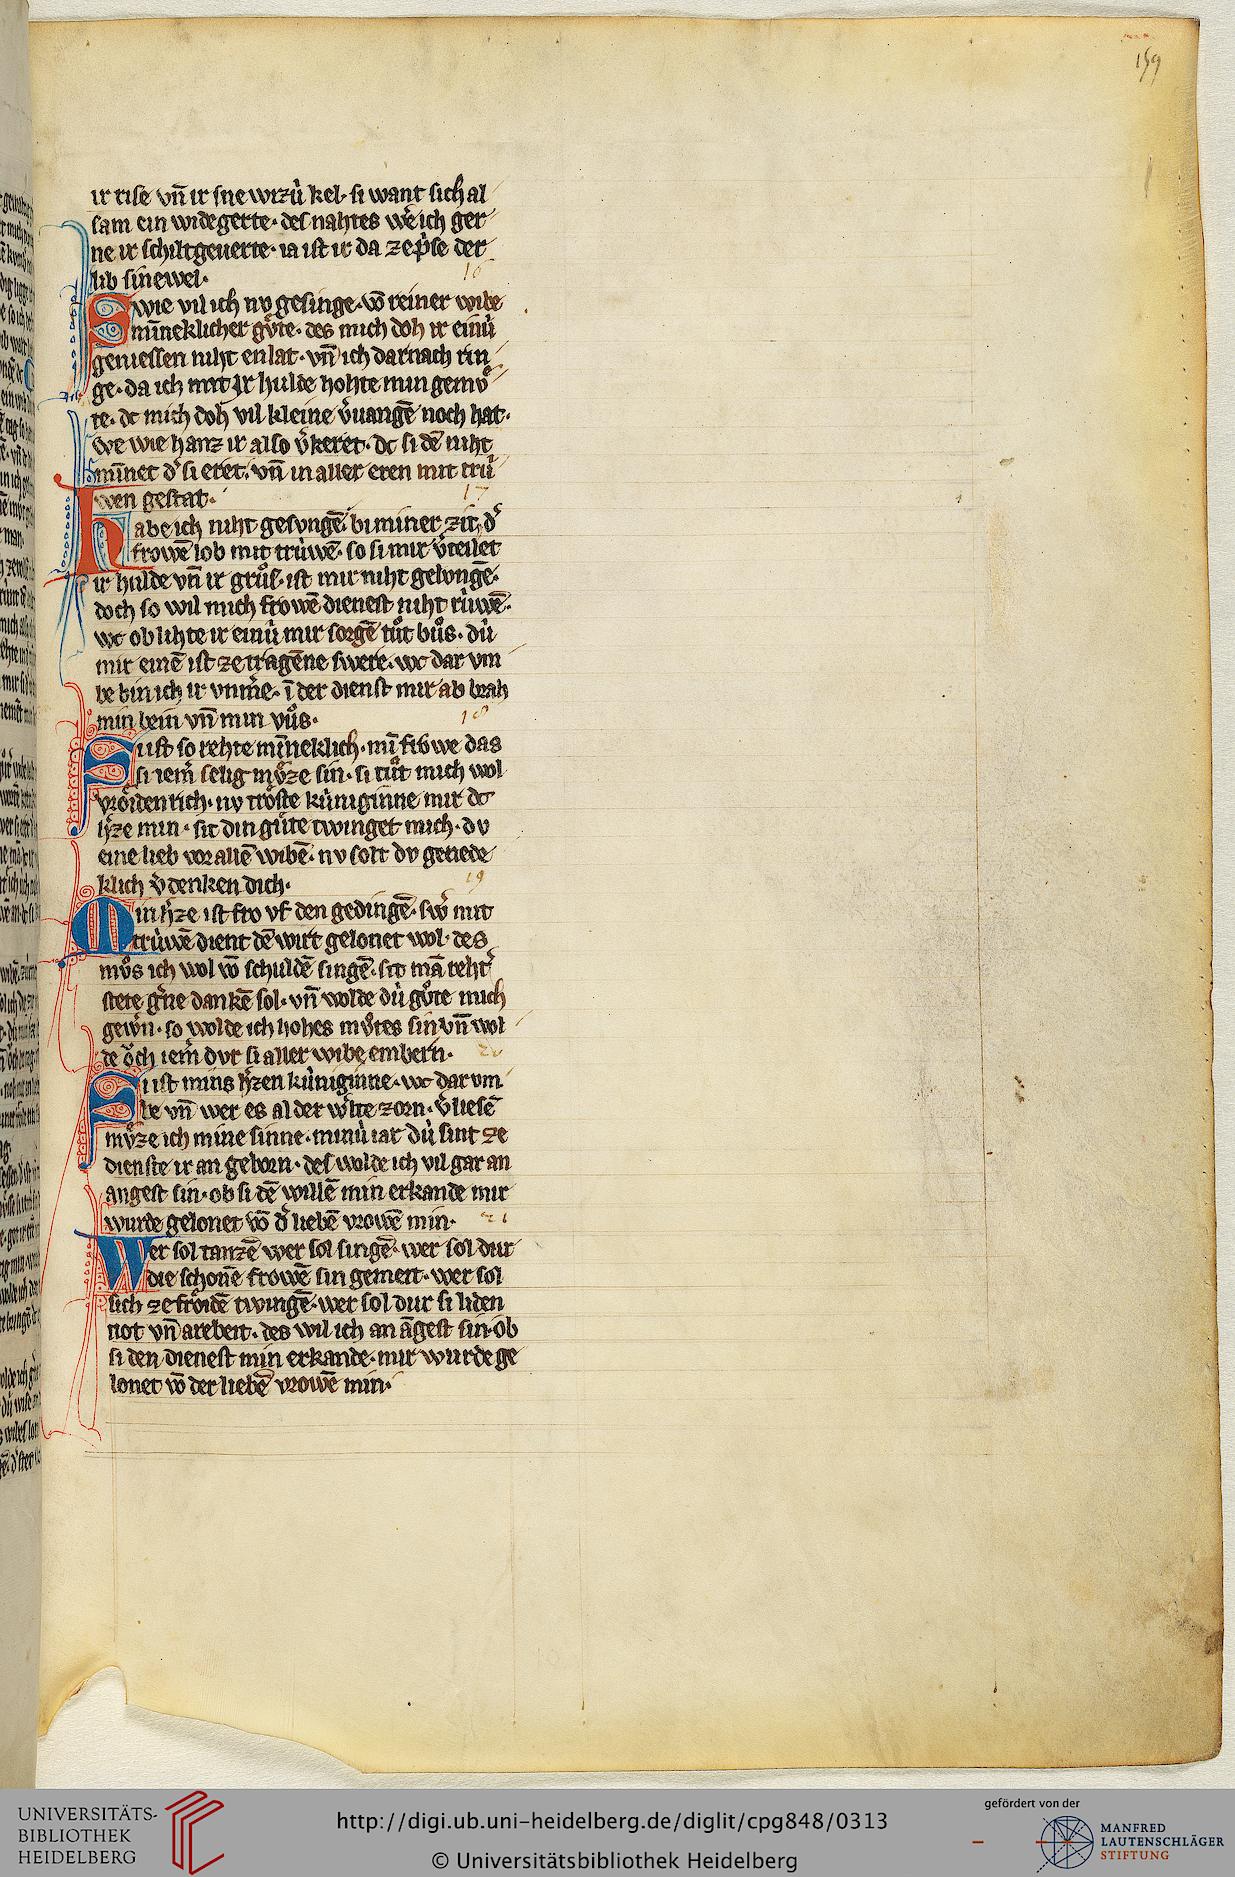 159
ir rise vn̄ ir sne wizú kel· si want sich al
sam ein widegerte· des nahtes wͤe ich ger
ne ir schiltgeuerte· ia ist ir da ze p̄se der
lib sinewel·
16
Swie vil ich nv gesinge· vō reiner wibe
miñeklicher gv̊te· des mich doh ir einú
geniessen niht enlat· vn̄ ich darnach rin
ge· da ich mit ir hulde hohte min gemv̊
te· dc mich doh vil kleine v̾uangē noch hat·
we wie hanz ir also v̾keret· dc si dē niht
miñet d̾ si eret· vn̄ in aller eren mit trú
wen gestat·
17
Habe ich niht gesvngē bi miner zit· d̾
frowē lob mit trúwē· so si mir v̾teilet
ir hulde vn̄ ir grůs· ist mir niht gelvngē·
doch so wil mich frowē dienest niht rúwē·
wc ob lihte ir einú mir sorgē tůt bůs· dú
mir einē ist ze tragēne swere· wc dar vm
be bin ich ir vnm̾e· ī der dienst mir ab brah
min bein vn̄ min vůs·
18
Si ist so rehte miñeklich· mī frowe das
si iem̾ selig mv̊ze sin· si tůt mich wol
vrôidenrich· nv trôste kúniginne mir dc
h̾ze min· sit din gúte twinget mich· dv
eine lieb vor allē wibē· nv solt dv genede
klich v̾denken dich·
19
Min h̾ze ist fro vf den gedingē· sw̾ mit
trúwē dient dē wirt gelonet wol· des
mv̊s ich wol vō schuldē singē· sit mā reht̾
stete g̾ne dankē sol· vn̄ wolde dú gv̊te mich
gew̾n· so wolde ich hohes mv̊tes sin vn̄ wol
de ôch iem̾ dvr si aller wibe enbern·
20
Si ist mins h̾zen kúniginne· wc dar vm
be vn̄ wer es al der w̾lte zorn· v̾liesē
mv̊ze ich mine sinne· minú iar dú sint ze
dienste ir an geborn· des wolde ich vil gar an
angest sin· ob si dē willē min erkande mir
wurde gelonet vō d̾ liebē vrowē min·
21
Wer sol tanzē wer sol singē· wer sol dur
die schonē frowē sin gemeit· wer sol
sich ze frôidē twingē· wer sol dur si liden
not vn̄ arebeit· des wil ich an āgest sin· ob
si den dienest min erkande· mir wurde ge
lonet vō der liebē vrowē min·
UNIVERSITÄTS-
BIBLIOTHEK
HEIDELBERG
http://digi.ub.uni-heidelberg.de/diglit/cpg848/0313
© Universitätsbibliothek Heidelberg
gefördert von der
MANFRED
LAUTENSCHLÄGER
STIFTUNG